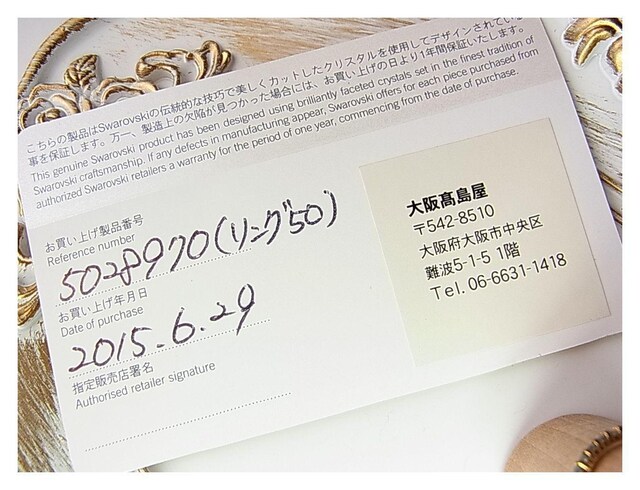 こちらの製品はSwarovskiの伝統的な技巧で美しくカットしたクリスタルを使用してデザインされている
事を保証します。万一、製造上の欠陥が見つかった場合には、お買い上げの日より1年間保証いたします。
This genuine Swarovski product has been designed using brilliantly faceted crystals set in the finest tradition of
Swarovski craftsmanship. If any defects in manufacturing appear, Swarovski offers for each piece purchased from
authorized Swarovski retailers a warranty for the period of one year, commencing from the date of purchase.
お買い上げ製品番号
Reference number
5028970(リング50)
お買い上げ年月日
Date of purchase
2015.6.29
指定販売店署名
Authorised retailer signature
大阪髙島屋
〒542-8510
大阪府大阪市中央区
難波5-1-5 1階
Tel. 06-6631-1418